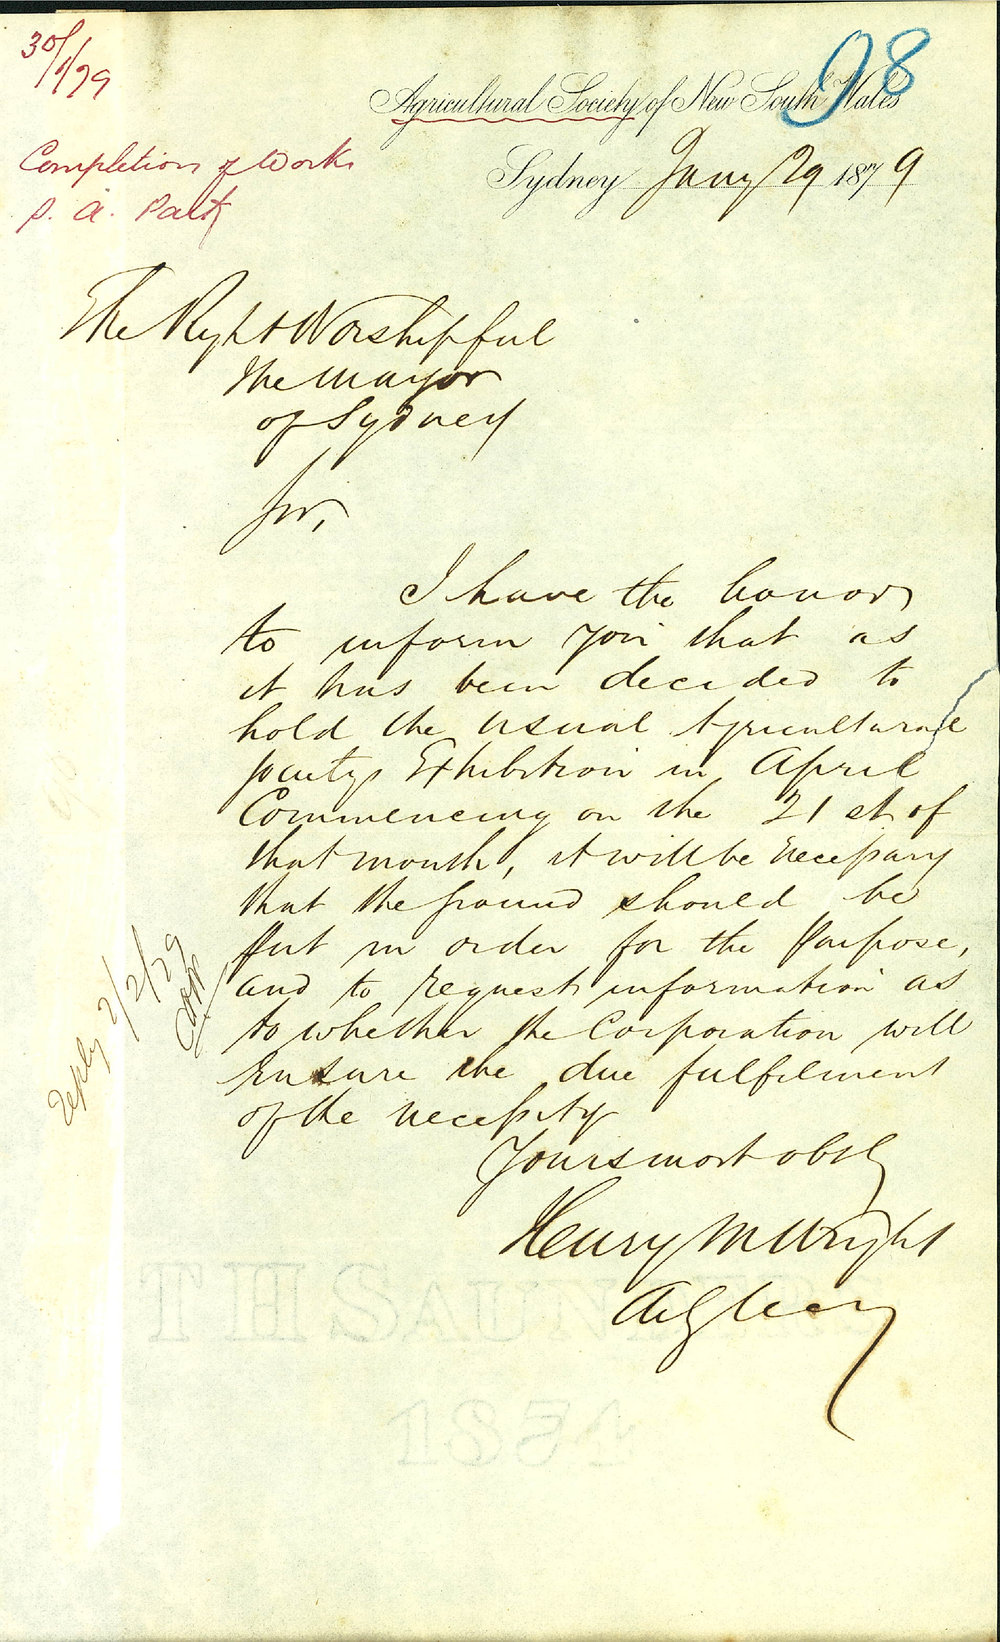 30/1/79
98
Agricultural Society of New South Wales
Completion of Works
P. A. Park
Sydney Jany 29 1879
The Right Worshipful
the Mayor
of Sydney
Sir,
I have the honor
to inform you that as
it has been decided to
hold the usual Agricultural
Societys Exhibition in April
Commencing on the 21st of
that month, it will be necessary
that the ground should be
put in order for the purpose,
and to request information as
to whether the Corporation will
ensure the due fulfilment
of the necessity
Yours most obtly
Henry M Wright
Reply 2/2/79
T H SAUNDERS